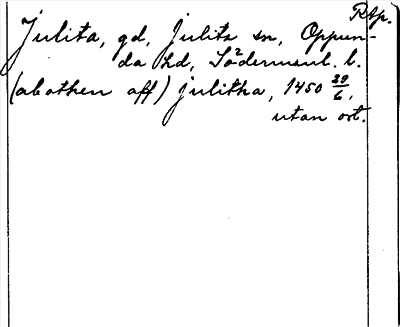 Rtp.
Julita, gd, Julita sn, Oppun-
da hd, Södermanl. l.
(abothen aff) julitha, 1450 29/6,
utan ort.